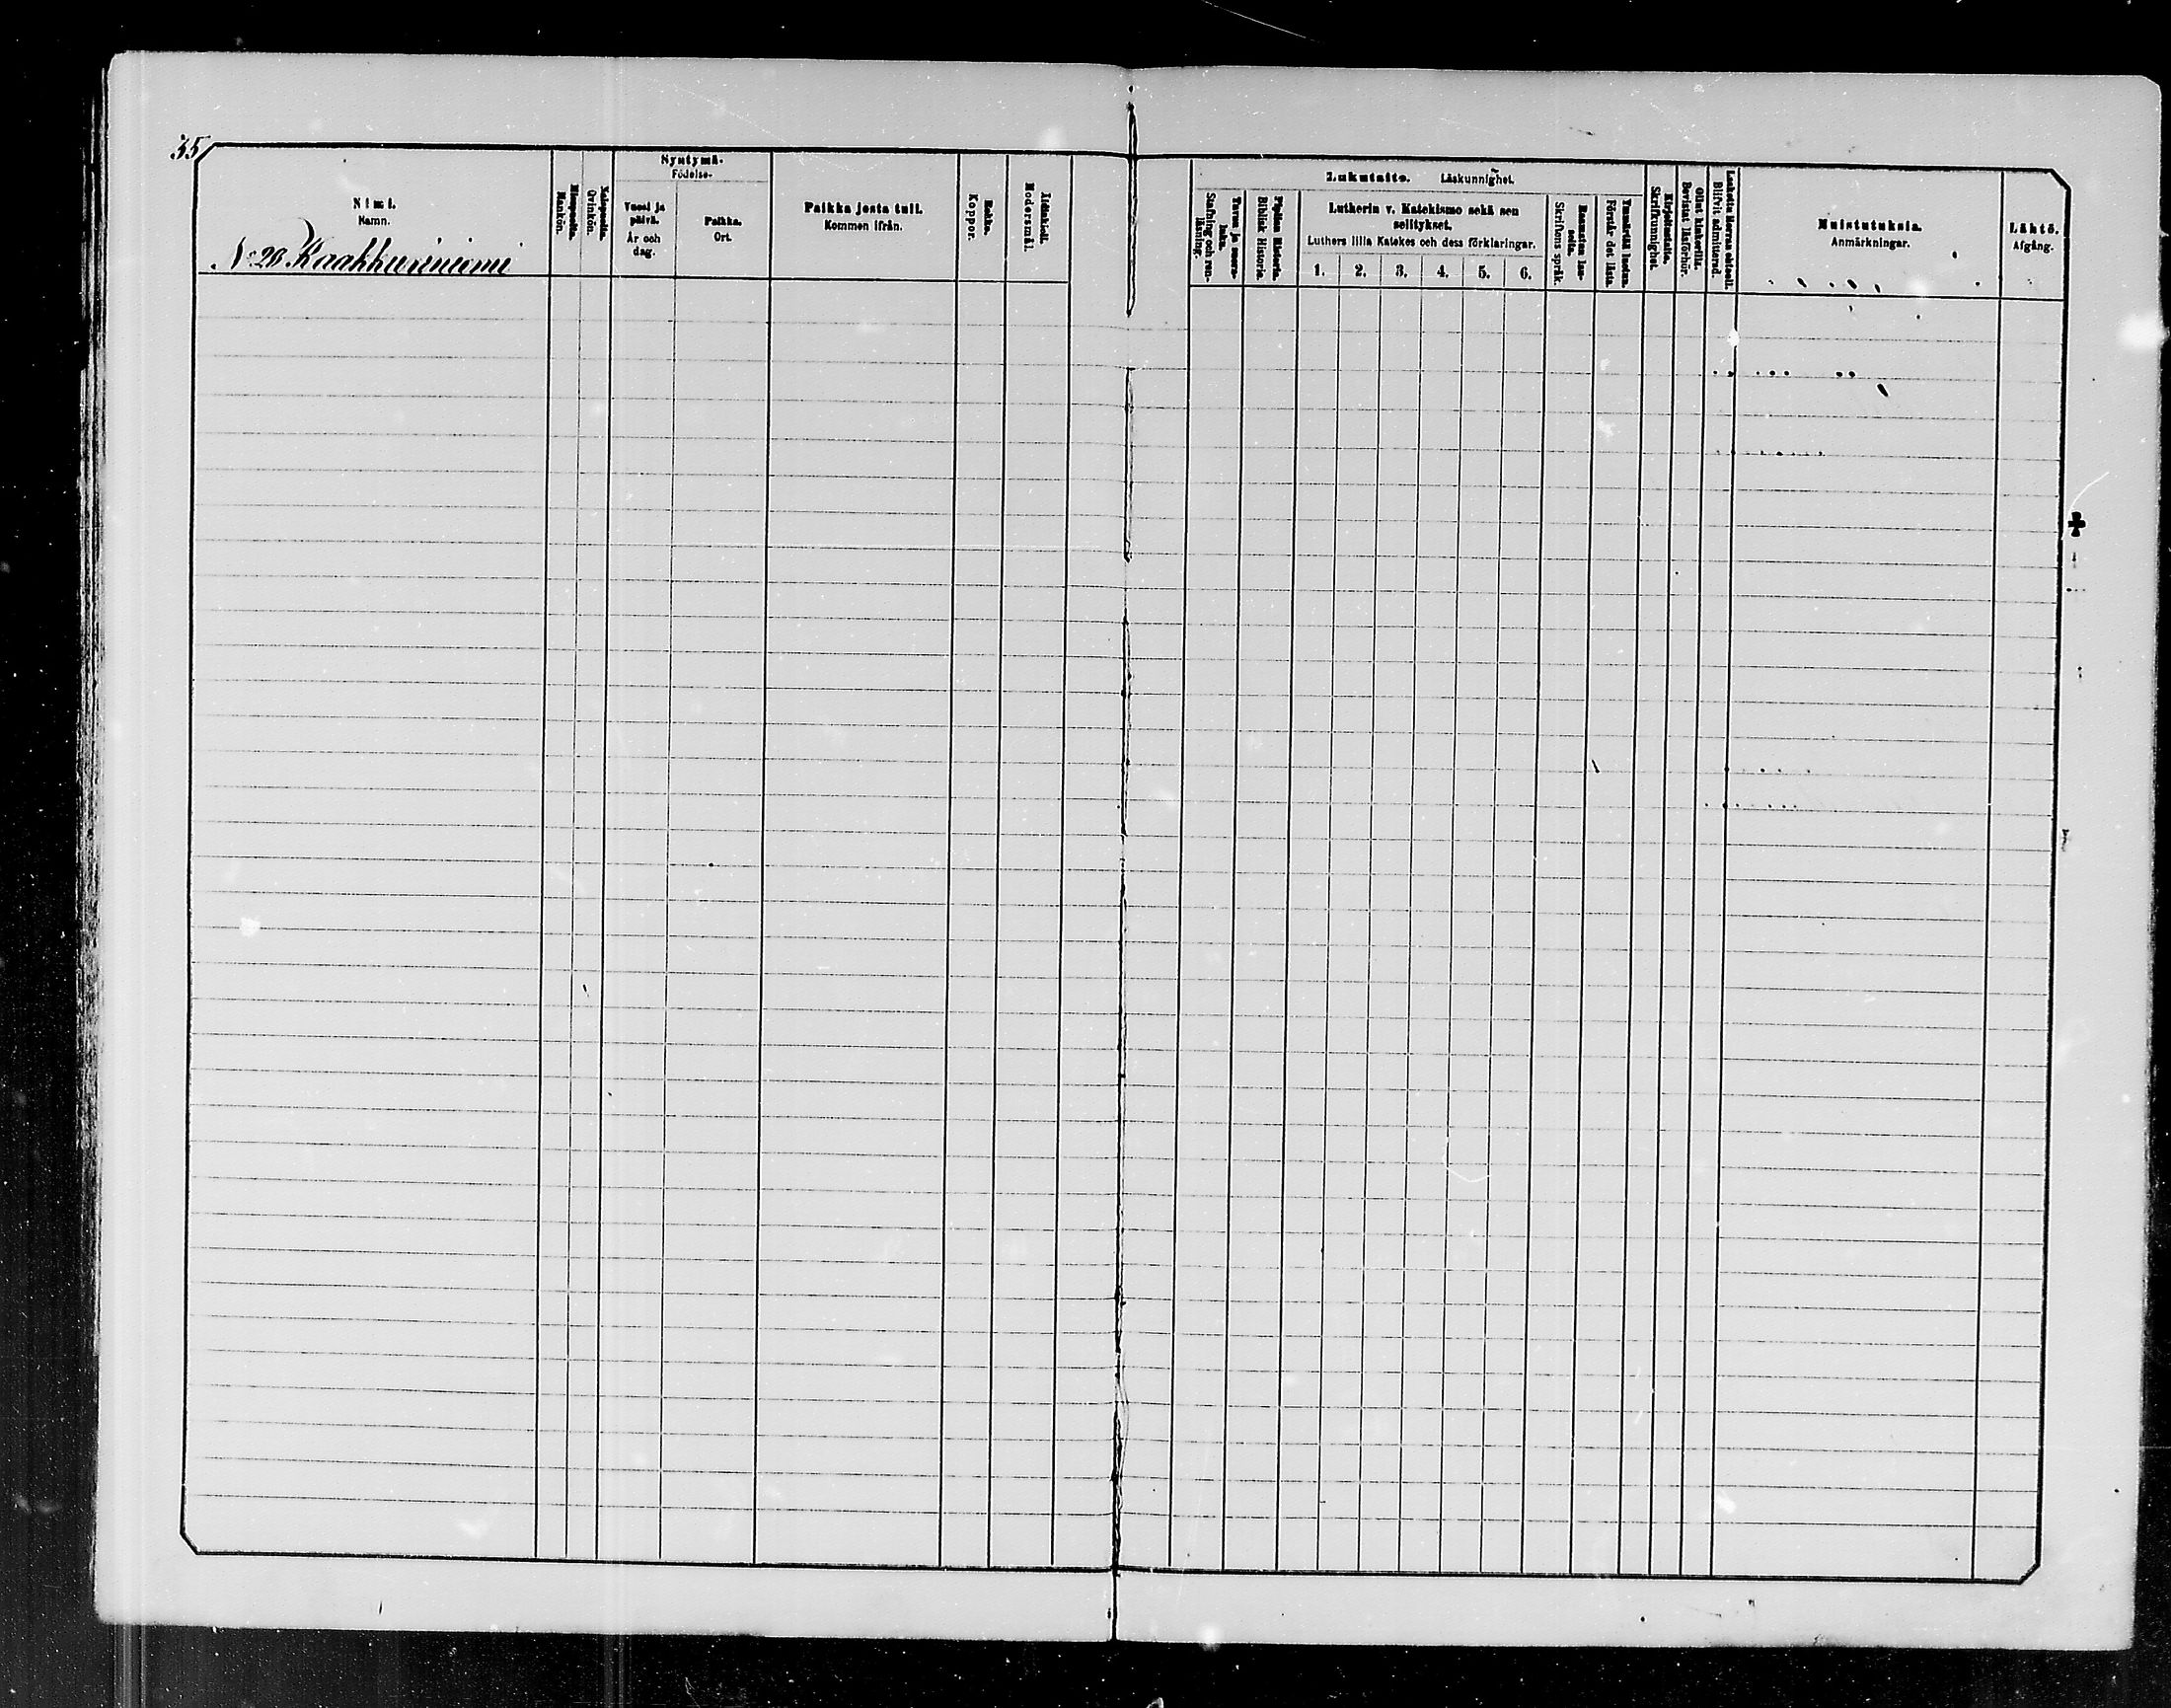 35
Nimi.
Namn.
No 20 Kaakkuriniemi
Miespuolia.
Mankön.
Naispuolia.
Qvinkön.
Syntymä-
Födelse-
Vuosi ja päivä.
År och dag.
Paikka.
Ort.
Paikka josta tuli.
Kommen ifrån.
Rokko.
Koppor.
Äidinkieli.
Modersmål.
Lukutaito. Läskunnighet.
Tavuu ja suora-luku.
Stafning och ren-läsning.
Piplian Historia.
Biblisk Historia.
Lutherin v. Katekismo sekä sen
selitykset.
Luthers lilla Katekes och dess förklaringar.
1. 2. 3. 4. 5. 6.
Raamatun lau-seita.
Skriftens språk.
Ymmärtää luetun.
Förstår det lästa.
Kirjoitustaito.
Skrifkunnighet.
Ollut kinkerillä.
Bevistat läsförhör.
Laskettu Herran ehtoolli.
Blifvit admitterad.
Muistutuksia.
Anmärkningar.
Lähtö.
Afgång.